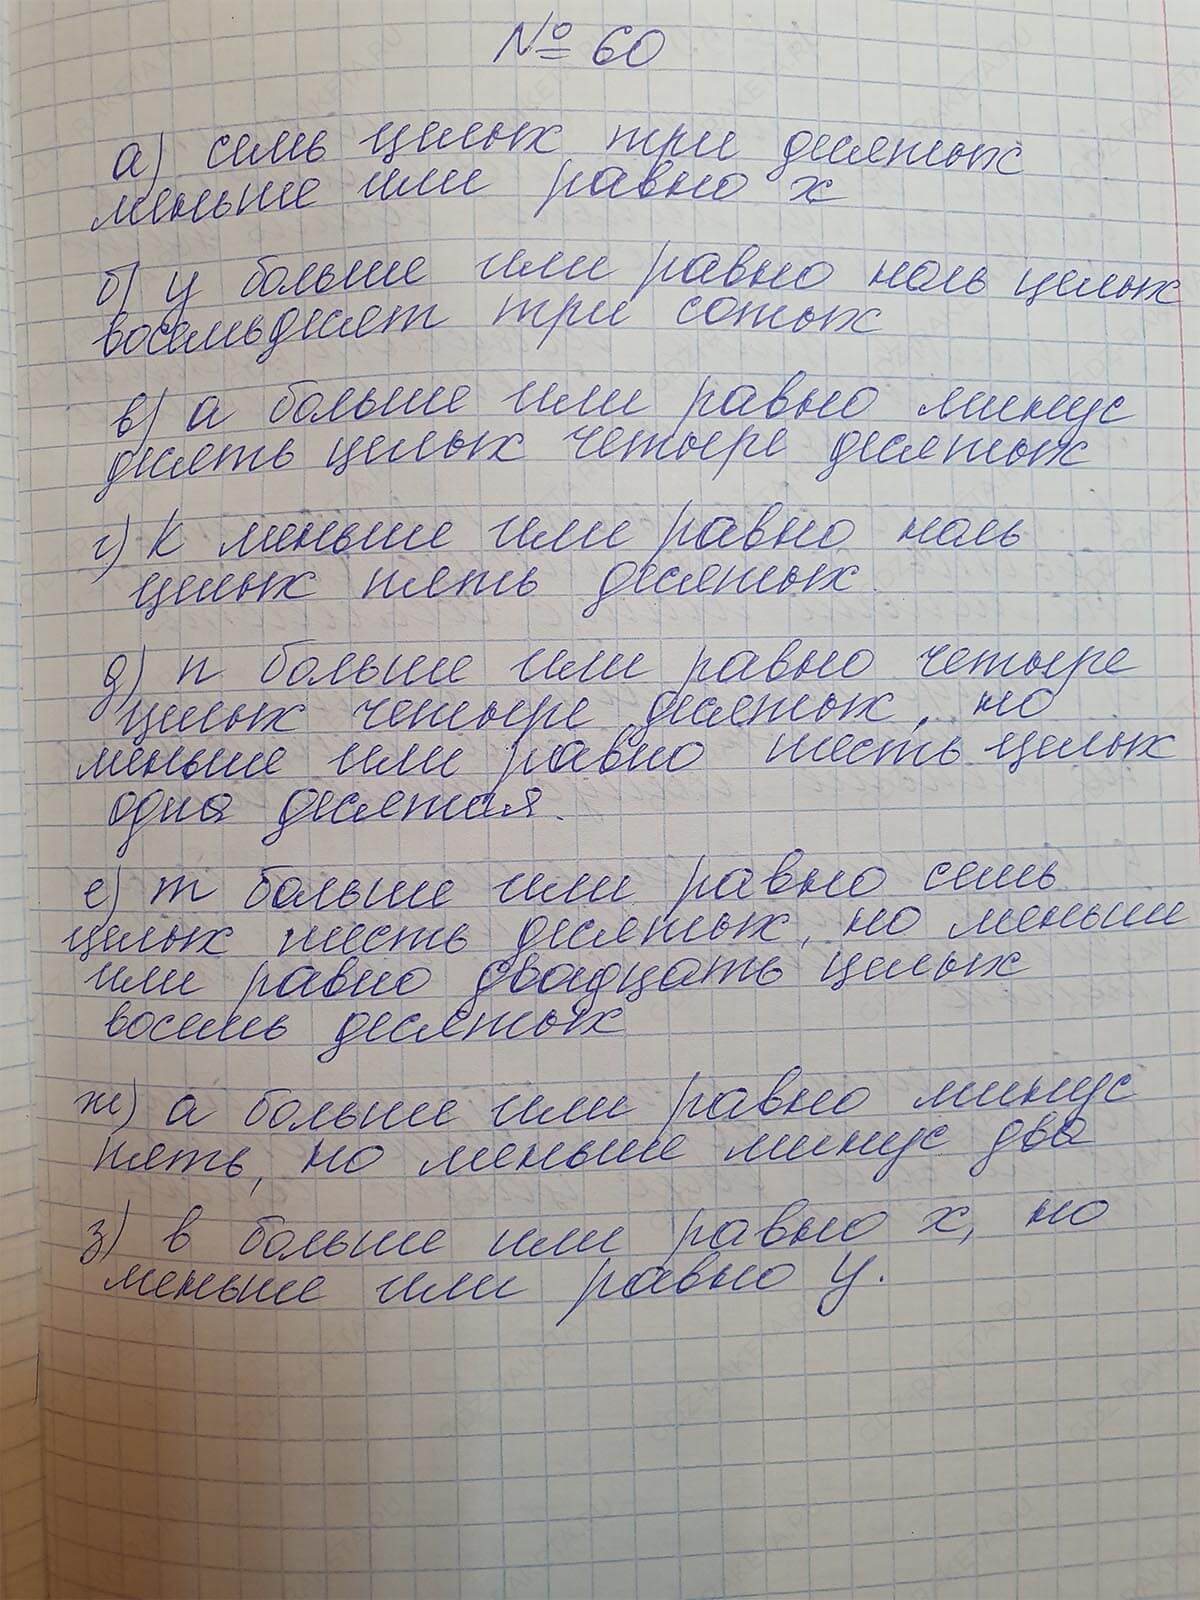 № 60
а) семь целых три десятых
меньше или равно х
б) у больше или равно ноль целых
восемьдесят три сотых
в) а больше или равно минус
десять целых четыре десятых
г) к меньше или равно ноль
целых пять десятых.
д) n больше или равно четыре
целых четыре десятых, но
меньше или равно шесть целых
одна десятая.
е) m больше или равно семь
целых шесть десятых, но меньше
или равно двадцать целых
восемь десятых
ж) а больше или равно минус
пять, но меньше минус два
з) в больше или равно х, но
меньше или равно у.